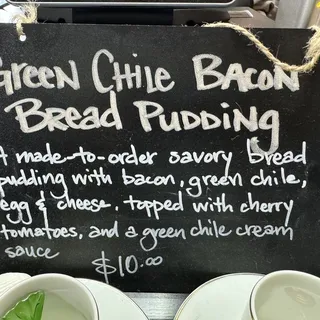 Green Chile Bacon
Bread Pudding
A made-to-order savory bread
pudding with bacon, green chile,
egg & cheese, topped with cherry
tomatoes, and a green chile cream
sauce
$10.00